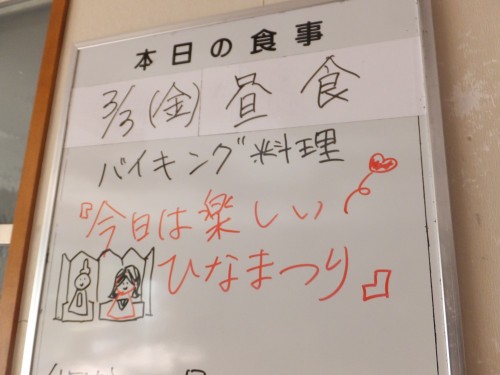 本日の食事
3/3(金) 昼食
バイキング料理
『今日は楽しい
ひなまつり』